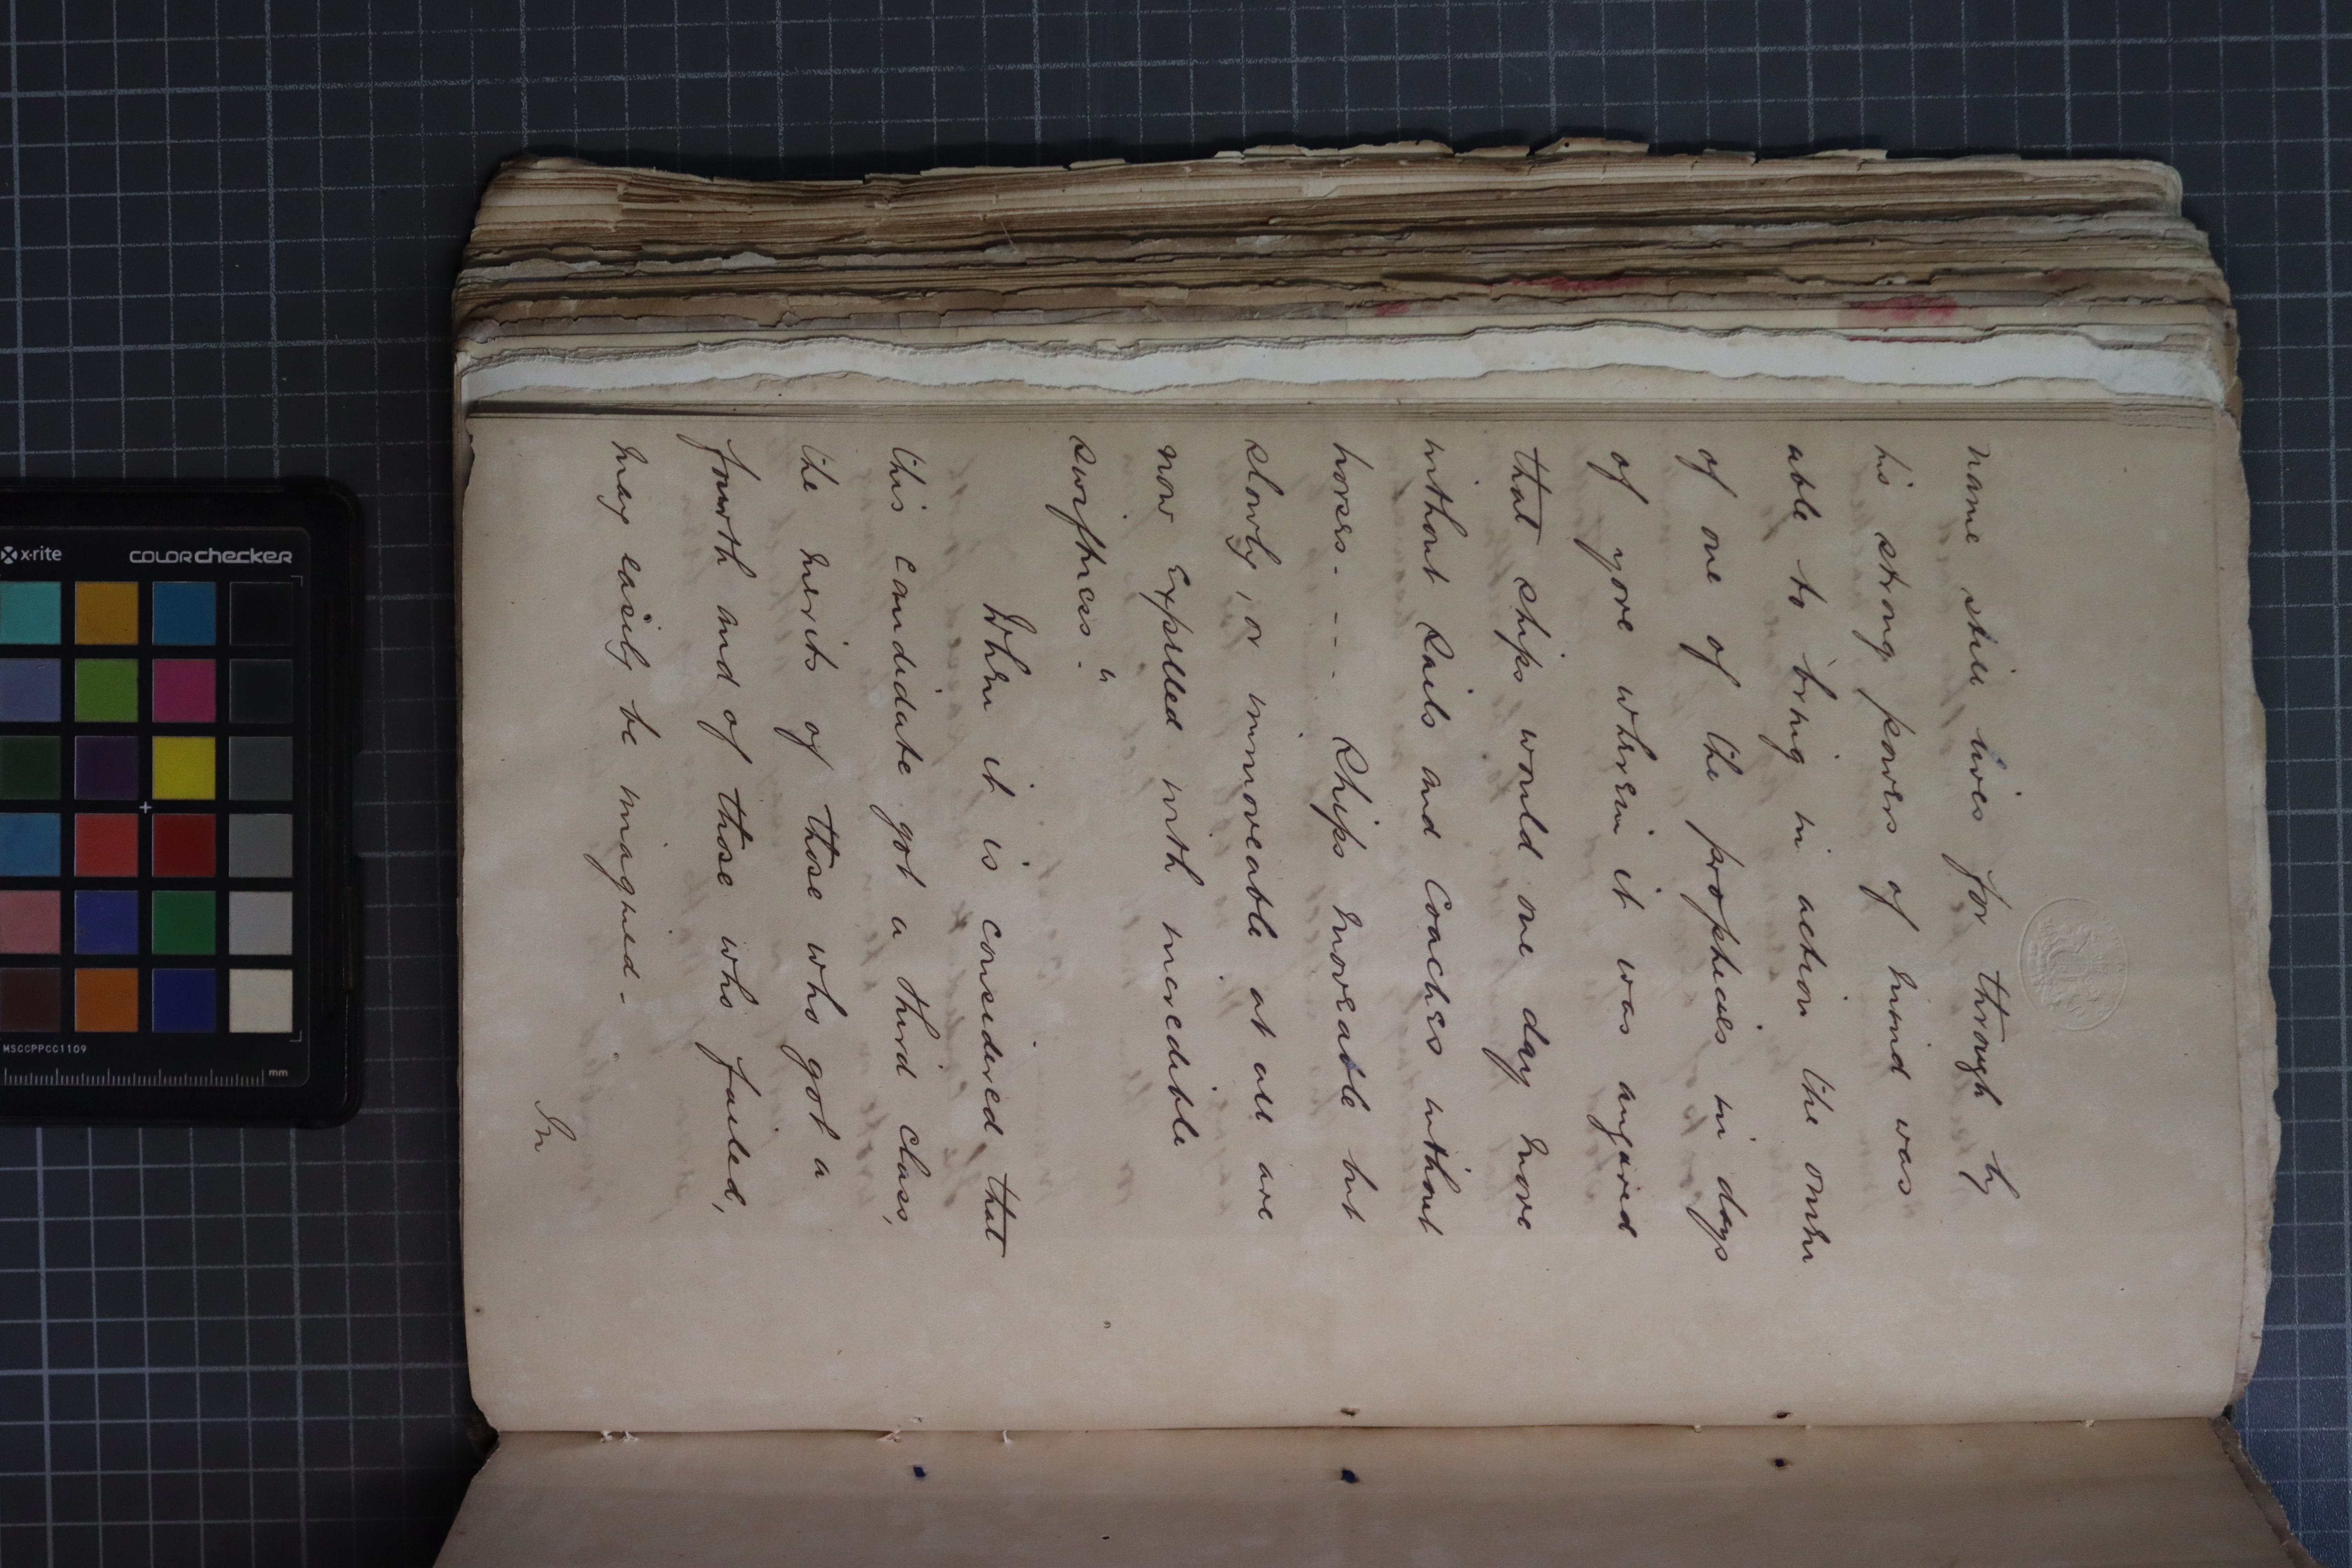 name still lives for through by
his strong powers of mind was
able to bring in action the omen
of one of the prophecies in days
of yore wherein it was augured
that ships would one day move
without sails and Coaches without
horses. - - - Ships moveable but
slowly, or immoveable at all are
now expelled with incredible
swiftness."
When it is considered that
this candidate got a third class,
the merits of those who got a
fourth and of those who failed,
may easily be imagined.
In
x-rite COLORchecker
MSCCPPCC1109
mm